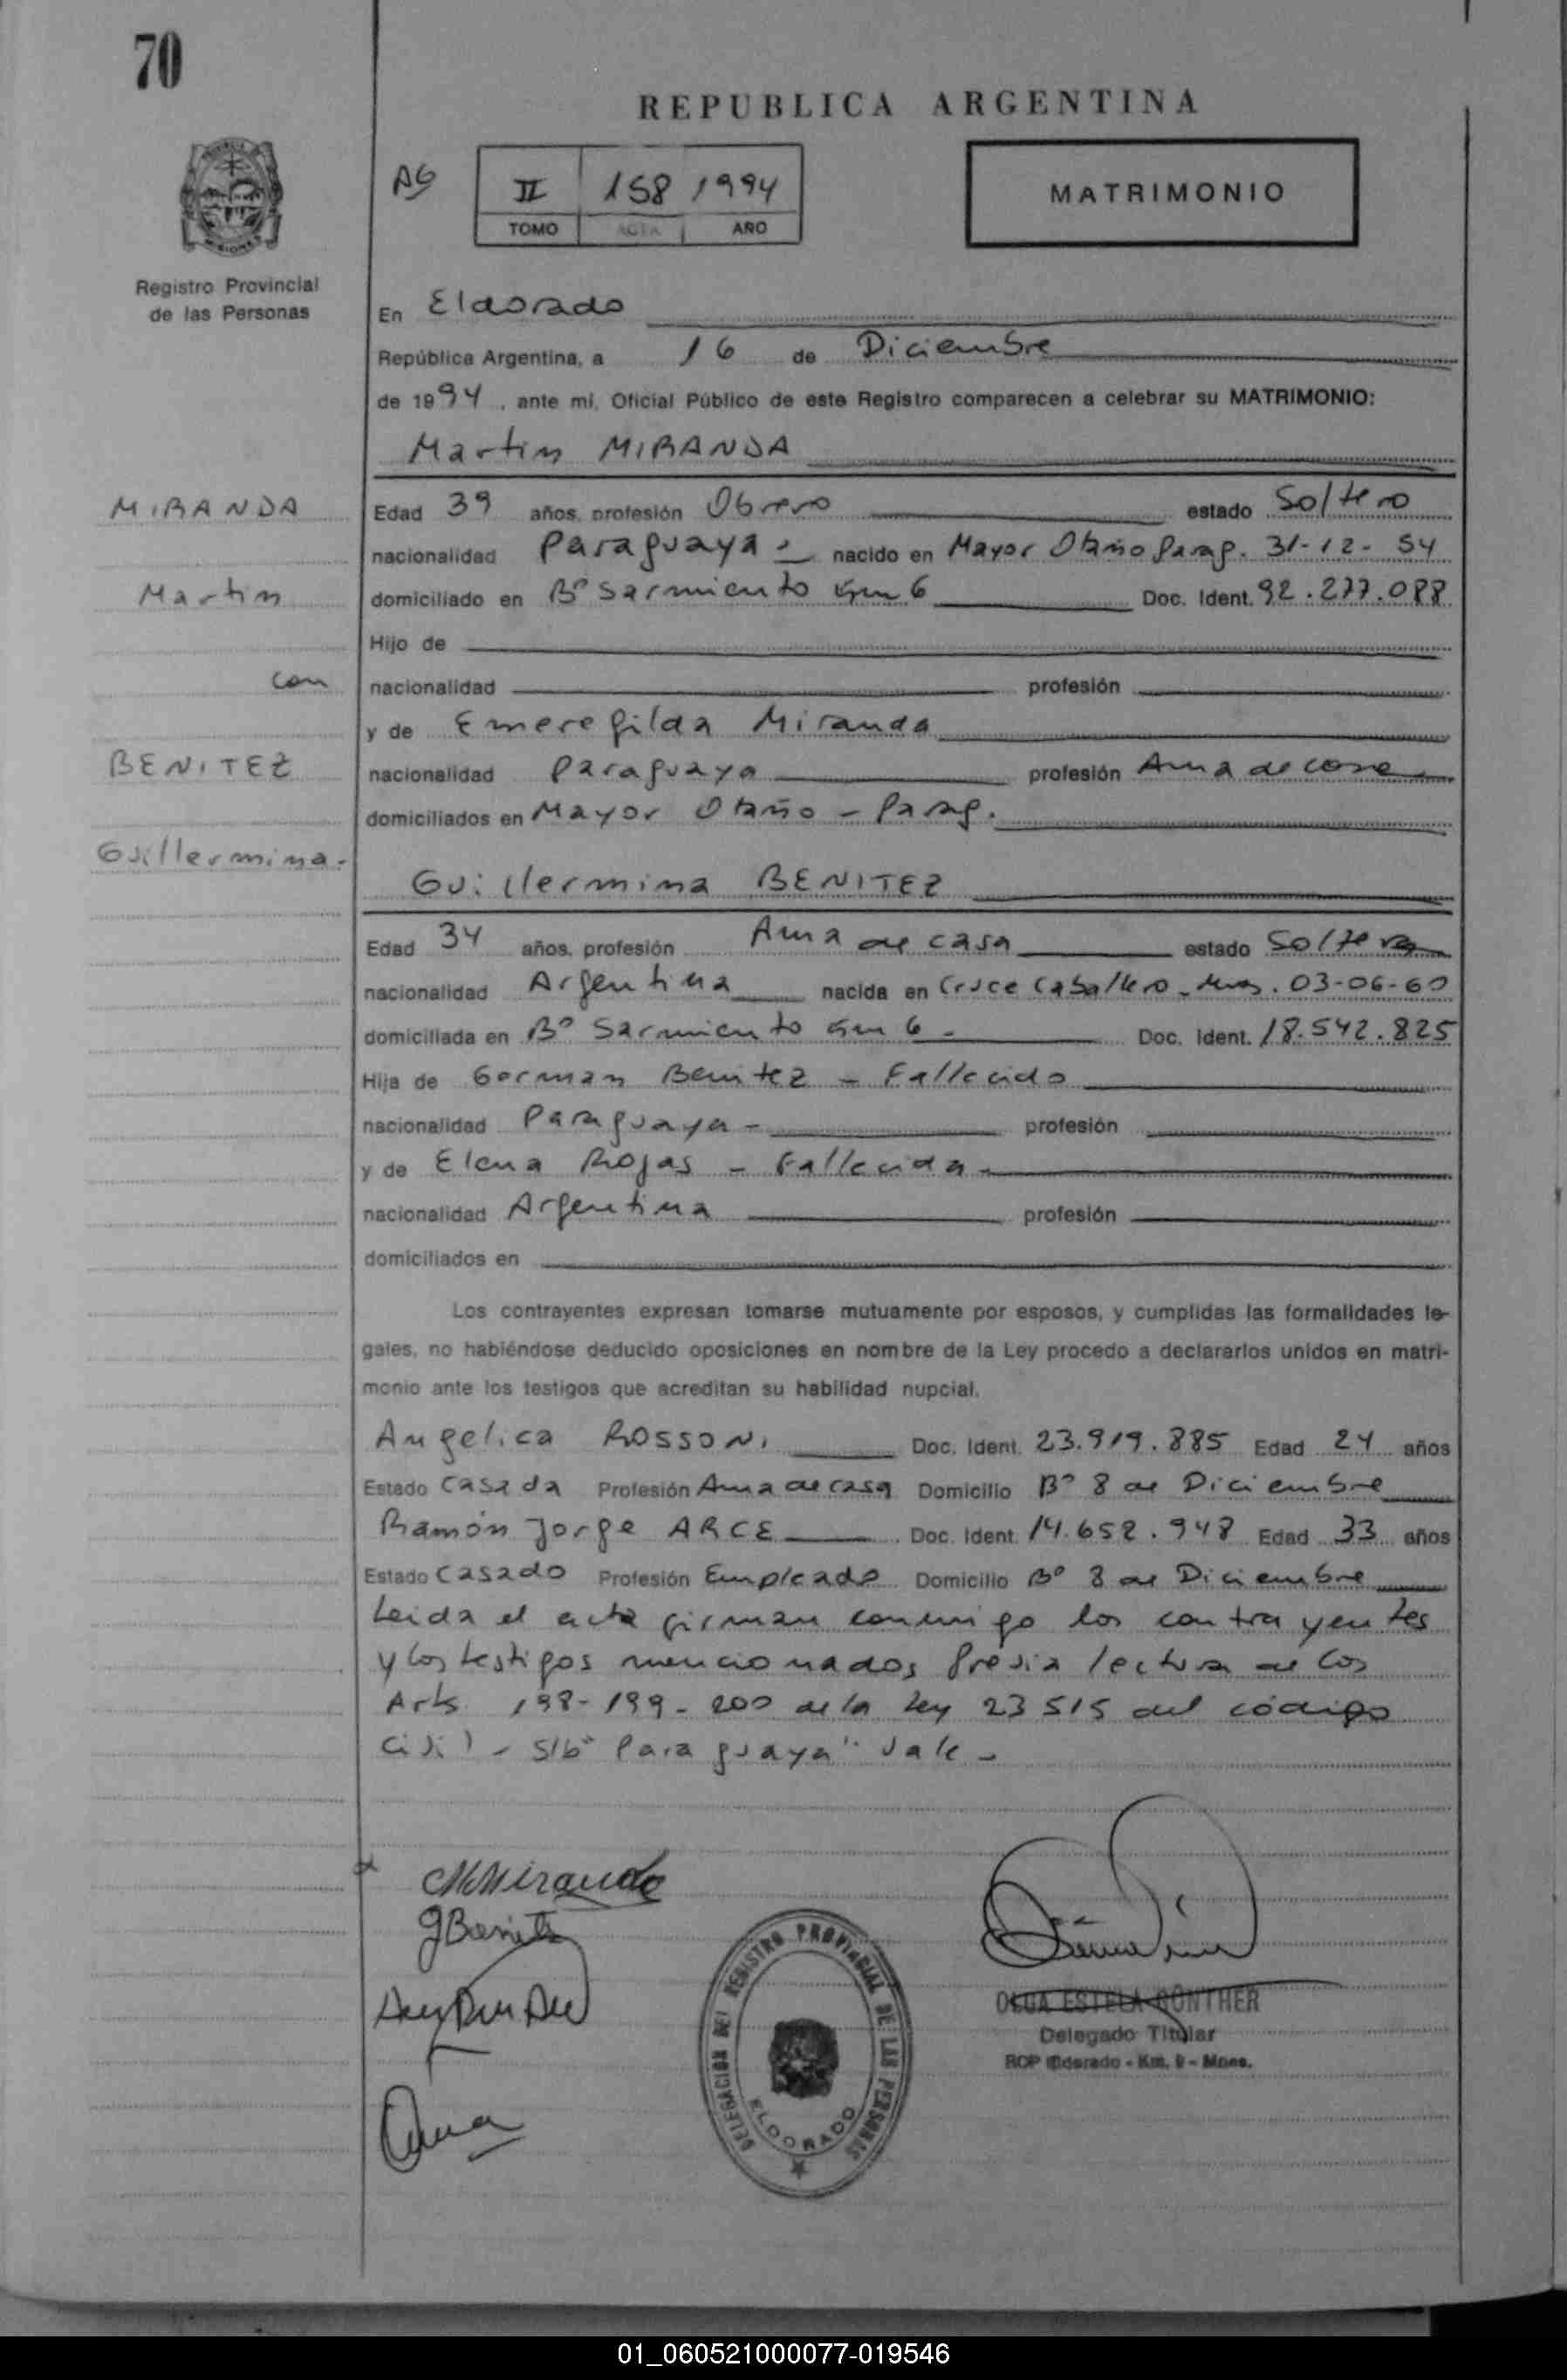 70
REPUBLICA ARGENTINA
AG
II 158 1994
TOMO ACTA AÑO
MATRIMONIO
Registro Provincial
de las Personas
En Eldorado
República Argentina, a 16 de Diciembre
de 1994, ante mi, Oficial Público de este Registro comparecen a celebrar su MATRIMONIO:
Martin MIRANDA
MIRANDA
Martin
con
BENITEZ
Guillermina.
Edad 39 años, profesión Obrero estado Soltero
nacionalidad Paraguaya.- nacido en Mayor Otaño Parag. 31-12-54
domiciliado en Bº Sarmiento Km 6 Doc. Ident. 92.277.088
Hijo de
nacionalidad profesión
y de Emeregilda Miranda
nacionalidad Paraguaya profesión Ama de casa
domiciliados en Mayor Otaño - Parag.
Guillermina BENITEZ
Edad 34 años, profesión Ama de casa estado Soltera
nacionalidad Argentina nacida en Cruce Caballero - Mnes. 03-06-60
domiciliada en Bº Sarmiento Km 6 - Doc. Ident. 18.542.825
Hija de German Benitez - Fallecido
nacionalidad Paraguaya - profesión
y de Elena Rojas - Fallecida -
nacionalidad Argentina profesión
domiciliados en
Los contrayentes expresan tomarse mutuamente por esposos, y cumplidas las formalidades le-
gales, no habiéndose deducido oposiciones en nombre de la Ley procedo a declararlos unidos en matri-
monio ante los testigos que acreditan su habilidad nupcial.
Angelica ROSSONI Doc. Ident. 23.919.885 Edad 24 años
Estado Casada Profesión Ama de casa Domicilio Bº 8 de Diciembre
Ramón Jorge ARCE Doc. Ident. 14.652.948 Edad 33 años
Estado Casado Profesión Empleado Domicilio Bº 8 de Diciembre
Leida el acta firman conmigo los contrayentes
y los testigos mencionados previa lectura de los
Arts 198-199-200 de la Ley 23515 del código
Civil - S/bº "Paraguaya" Vale -
MMiranda
GBenitez
DELEGACION DEL REGISTRO PROVINCIAL DE LAS PERSONAS
ELDORADO
OLGA ESTELA GÜNTHER
Delegado Titular
RCP Eldorado - Km. 9 - Mnes.
01_060521000077-019546